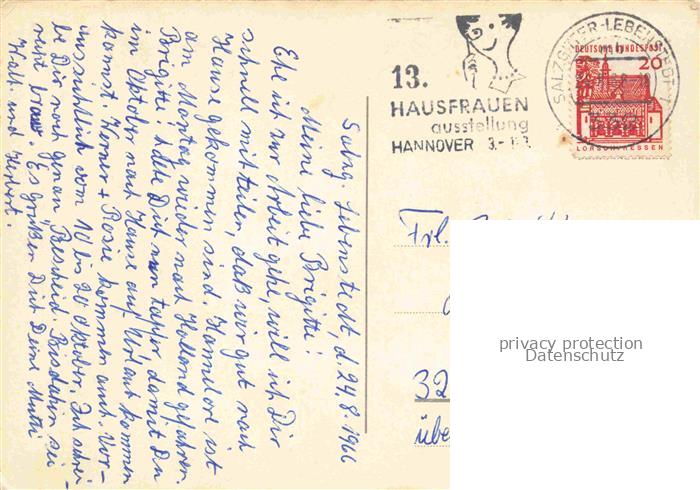 Salzg. Lebenstedt, d. 24.8.1966
Meine liebe Brigitte!
Ehe ich zur Arbeit gehe, will ich Dir
schnell mitteilen, daß wir gut nach
Hause gekommen sind. Hannelore ist
am Montag wieder nach Holland gefahren.
Brigitte halte Dich nun tapfer damit Du
im Oktober nach Hause auf Urlaub kommen
kannst. Werner + Rosie kommen auch. Vor-
aussichtlich vom 10 bis 20 Oktober. Ich schrei-
be Dir noch genau Bescheid. Bis dahin sei
recht brav. Es grüßen Dich Deine Mutti
Vati und Herbert.
13.
HAUSFRAUEN
ausstellung
HANNOVER 3.-
SALZGITTER-LEBENSTEDT
DEUTSCHE BUNDESPOST
20
LORSCH/HESSEN
Frl.
32
übe
privacy protection
Datenschutz